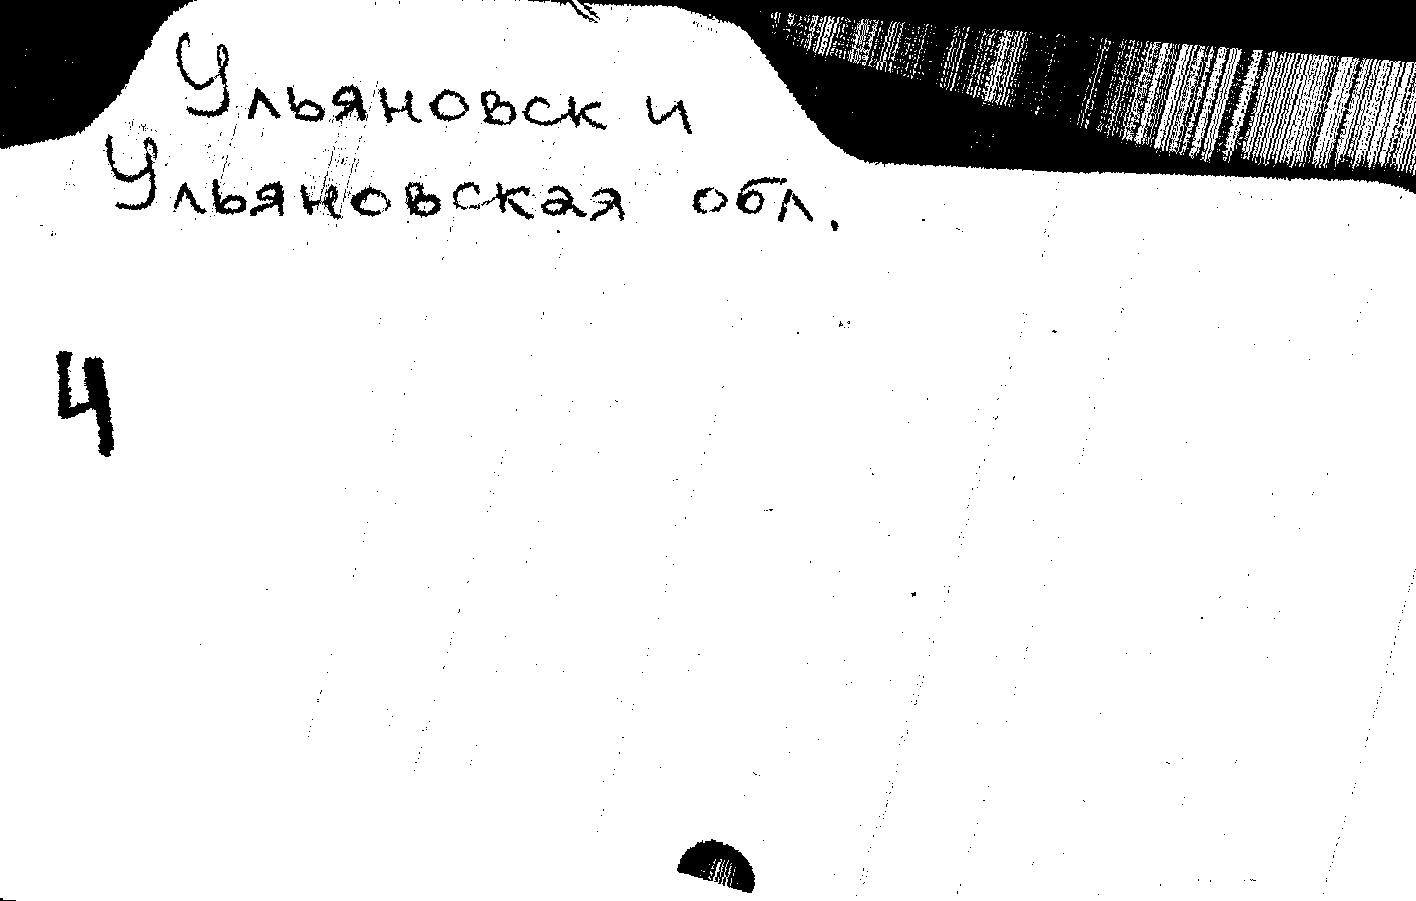 Ульяновск и
Ульяновская обл.
4